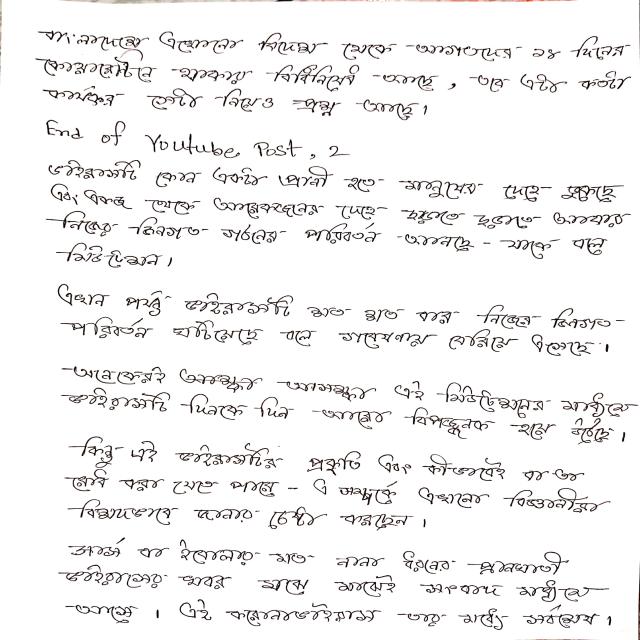 বাংলাদেশে এখোনো বিদেশ থেকে আগতদের ১৪ দিনের
কোয়ারেন্টিনে থাকার বিধিনিষেধ আছে, তবে এটা কতটা
কার্যকর সেটা নিয়েও প্রশ্ন আছে।
End of Youtube Post, 2
ভাইরাসটি কোন একটা প্রানী হতে মানুষের দেহে ঢুকছে
এবং একজন থেকে আরেকজনের দেহে ছড়াতে ছড়াতে আবার
নিজের জিনগত গঠনের পরিবর্তন আনছে - যাকে বলে
মিউটেশন।
এখন পর্যন্ত ভাইরাসটি শত শত বার নিজের জিনগত
পরিবর্তন ঘটিয়েছে বলে গবেষণায় বেরিয়ে এসেছে।
অনেকেরই আশঙ্কা এই মিউটেশনের মাধ্যমে
ভাইরাসটি দিনকে দিন আরো বিপজ্জনক হয়ে উঠছে।
কিন্তু এই ভাইরাসটির প্রকৃতি এবং কীভাবেই বা তা
রোধ করা যেতে পারে - এ সম্পর্কে এখনো বিজ্ঞানীরা
বিশদভাবে জানার চেষ্টা করছেন।
সার্স বা ইবোলার মত নানা ধরনের প্রানঘাতী
ভাইরাসের খবর মাঝে মাঝেই সংবাদ মাধ্যমে
আসে। এই করোনাভাইরাস তার মধ্যে সর্বশেষ।